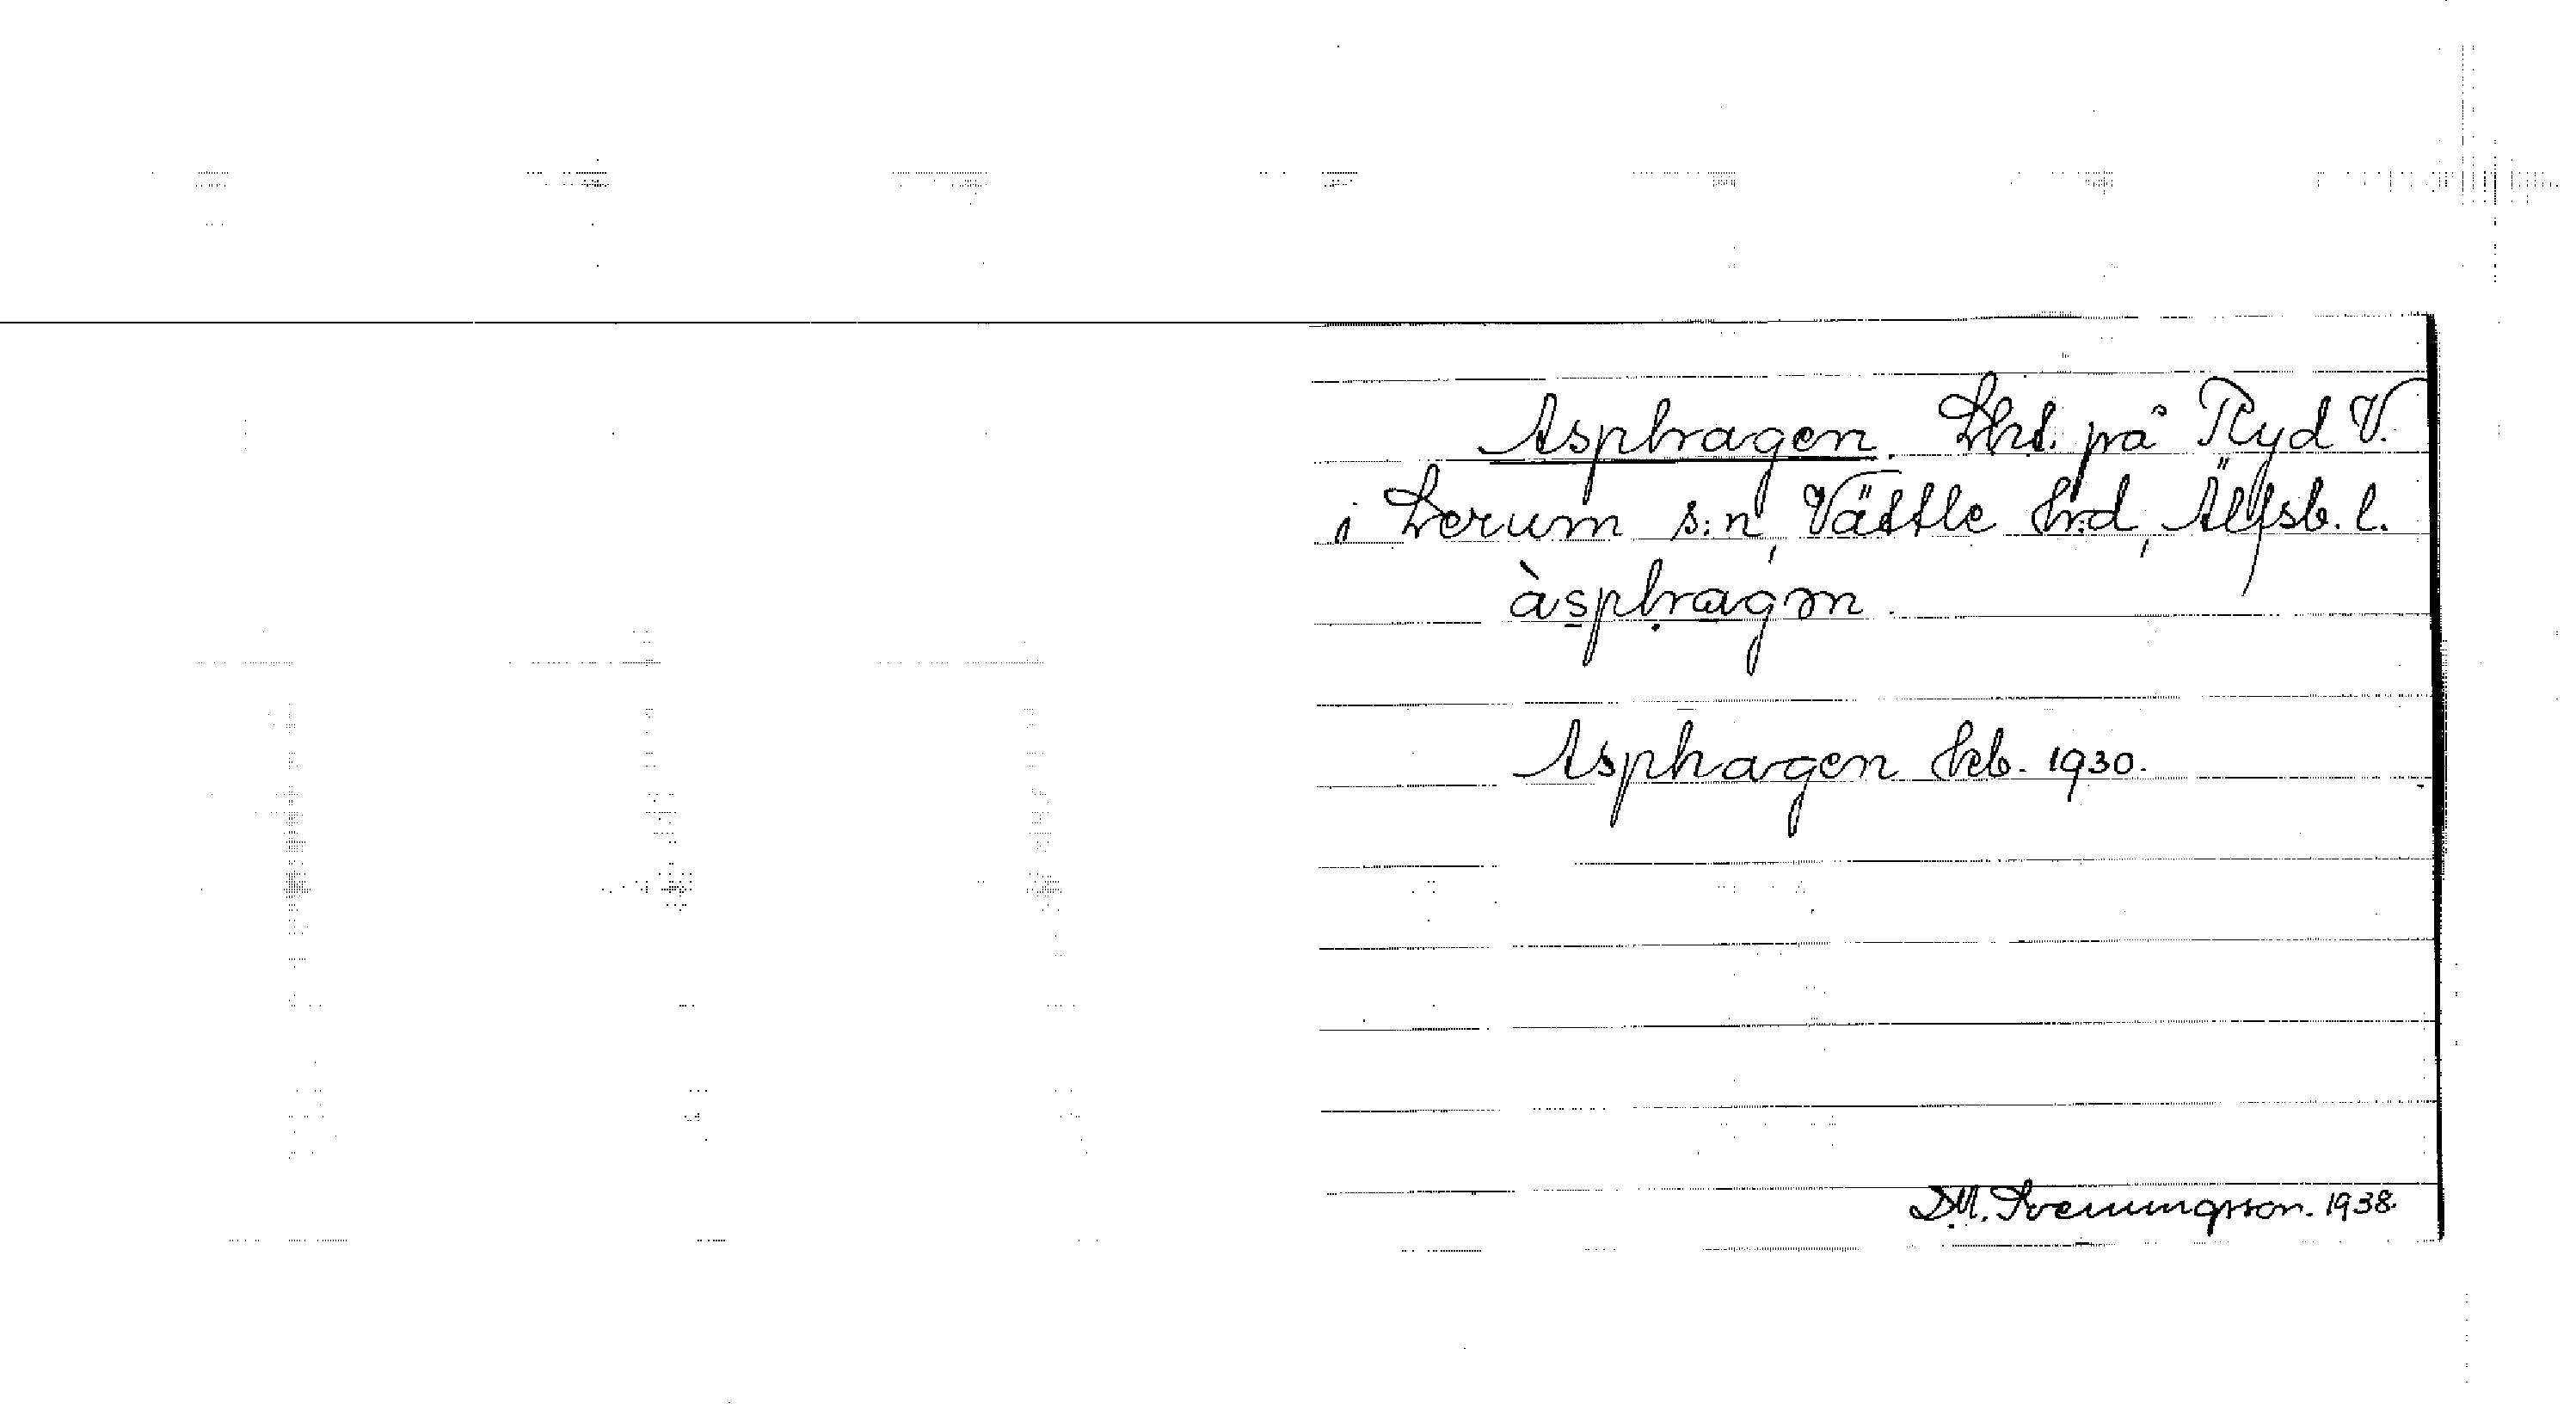 Asphagen. Lht. på Ryd V.
i Lerum s:n, Vättle h:d, Älfsb. l.
àsphagən.
Asphagen 1930.
D.M. Svenningsson. 1938.